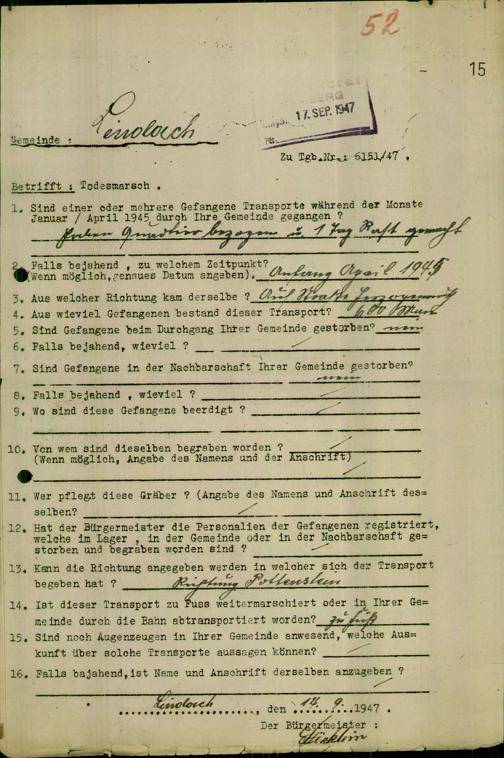 52
15
17. SEP. 1947
Gemeinde : Lindach
Zu Tgb.Nr.: 6151/47 .
Betrifft : Todesmarsch .
1. Sind einer oder mehrere Gefangene Transporte während der Monate
Januar / April 1945 durch Ihre Gemeinde gegangen ?
haben Quartier bezogen u. 1 Tag Rast gemacht
2. Falls bejahend , zu welchem Zeitpunkt?
(Wenn möglich,genaues Datum angeben). Anfang April 1945
3. Aus welcher Richtung kam derselbe ?
4. Aus wieviel Gefangenen bestand dieser Transport? 600 Mann
5. Sind Gefangene beim Durchgang Ihrer Gemeinde gestorben? nein
6. Falls bejahend, wieviel ?
7. Sind Gefangene in der Nachbarschaft Ihrer Gemeinde gestorben?
nein
8. Falls bejahend , wieviel ?
9. Wo sind diese Gefangene beerdigt ?
10. Von wem sind dieselben begraben worden ?
(Wenn möglich, Angabe des Namens und der Anschrift)
11. Wer pflegt diese Gräber ? (Angabe des Namens und Anschrift des=
selben?
12. Hat der Bürgermeister die Personalien der Gefangenen registriert,
welche im Lager , in der Gemeinde oder in der Nachbarschaft ge=
storben und begraben worden sind ?
13. Kann die Richtung angegeben werden in welcher sich der Transport
begeben hat ? Richtung Pottenstein
14. Ist dieser Transport zu Fuss weitermarschiert oder in Ihrer Ge=
meinde durch die Bahn abtransportiert worden? zu Fuß
15. Sind noch Augenzeugen in Ihrer Gemeinde anwesend, welche Aus=
kunft über solche Transporte aussagen können?
16. Falls bajahend,ist Name und Anschrift derselben anzugeben ?
Lindach , den 14. 9. 1947 .
Der Bürgermeister :